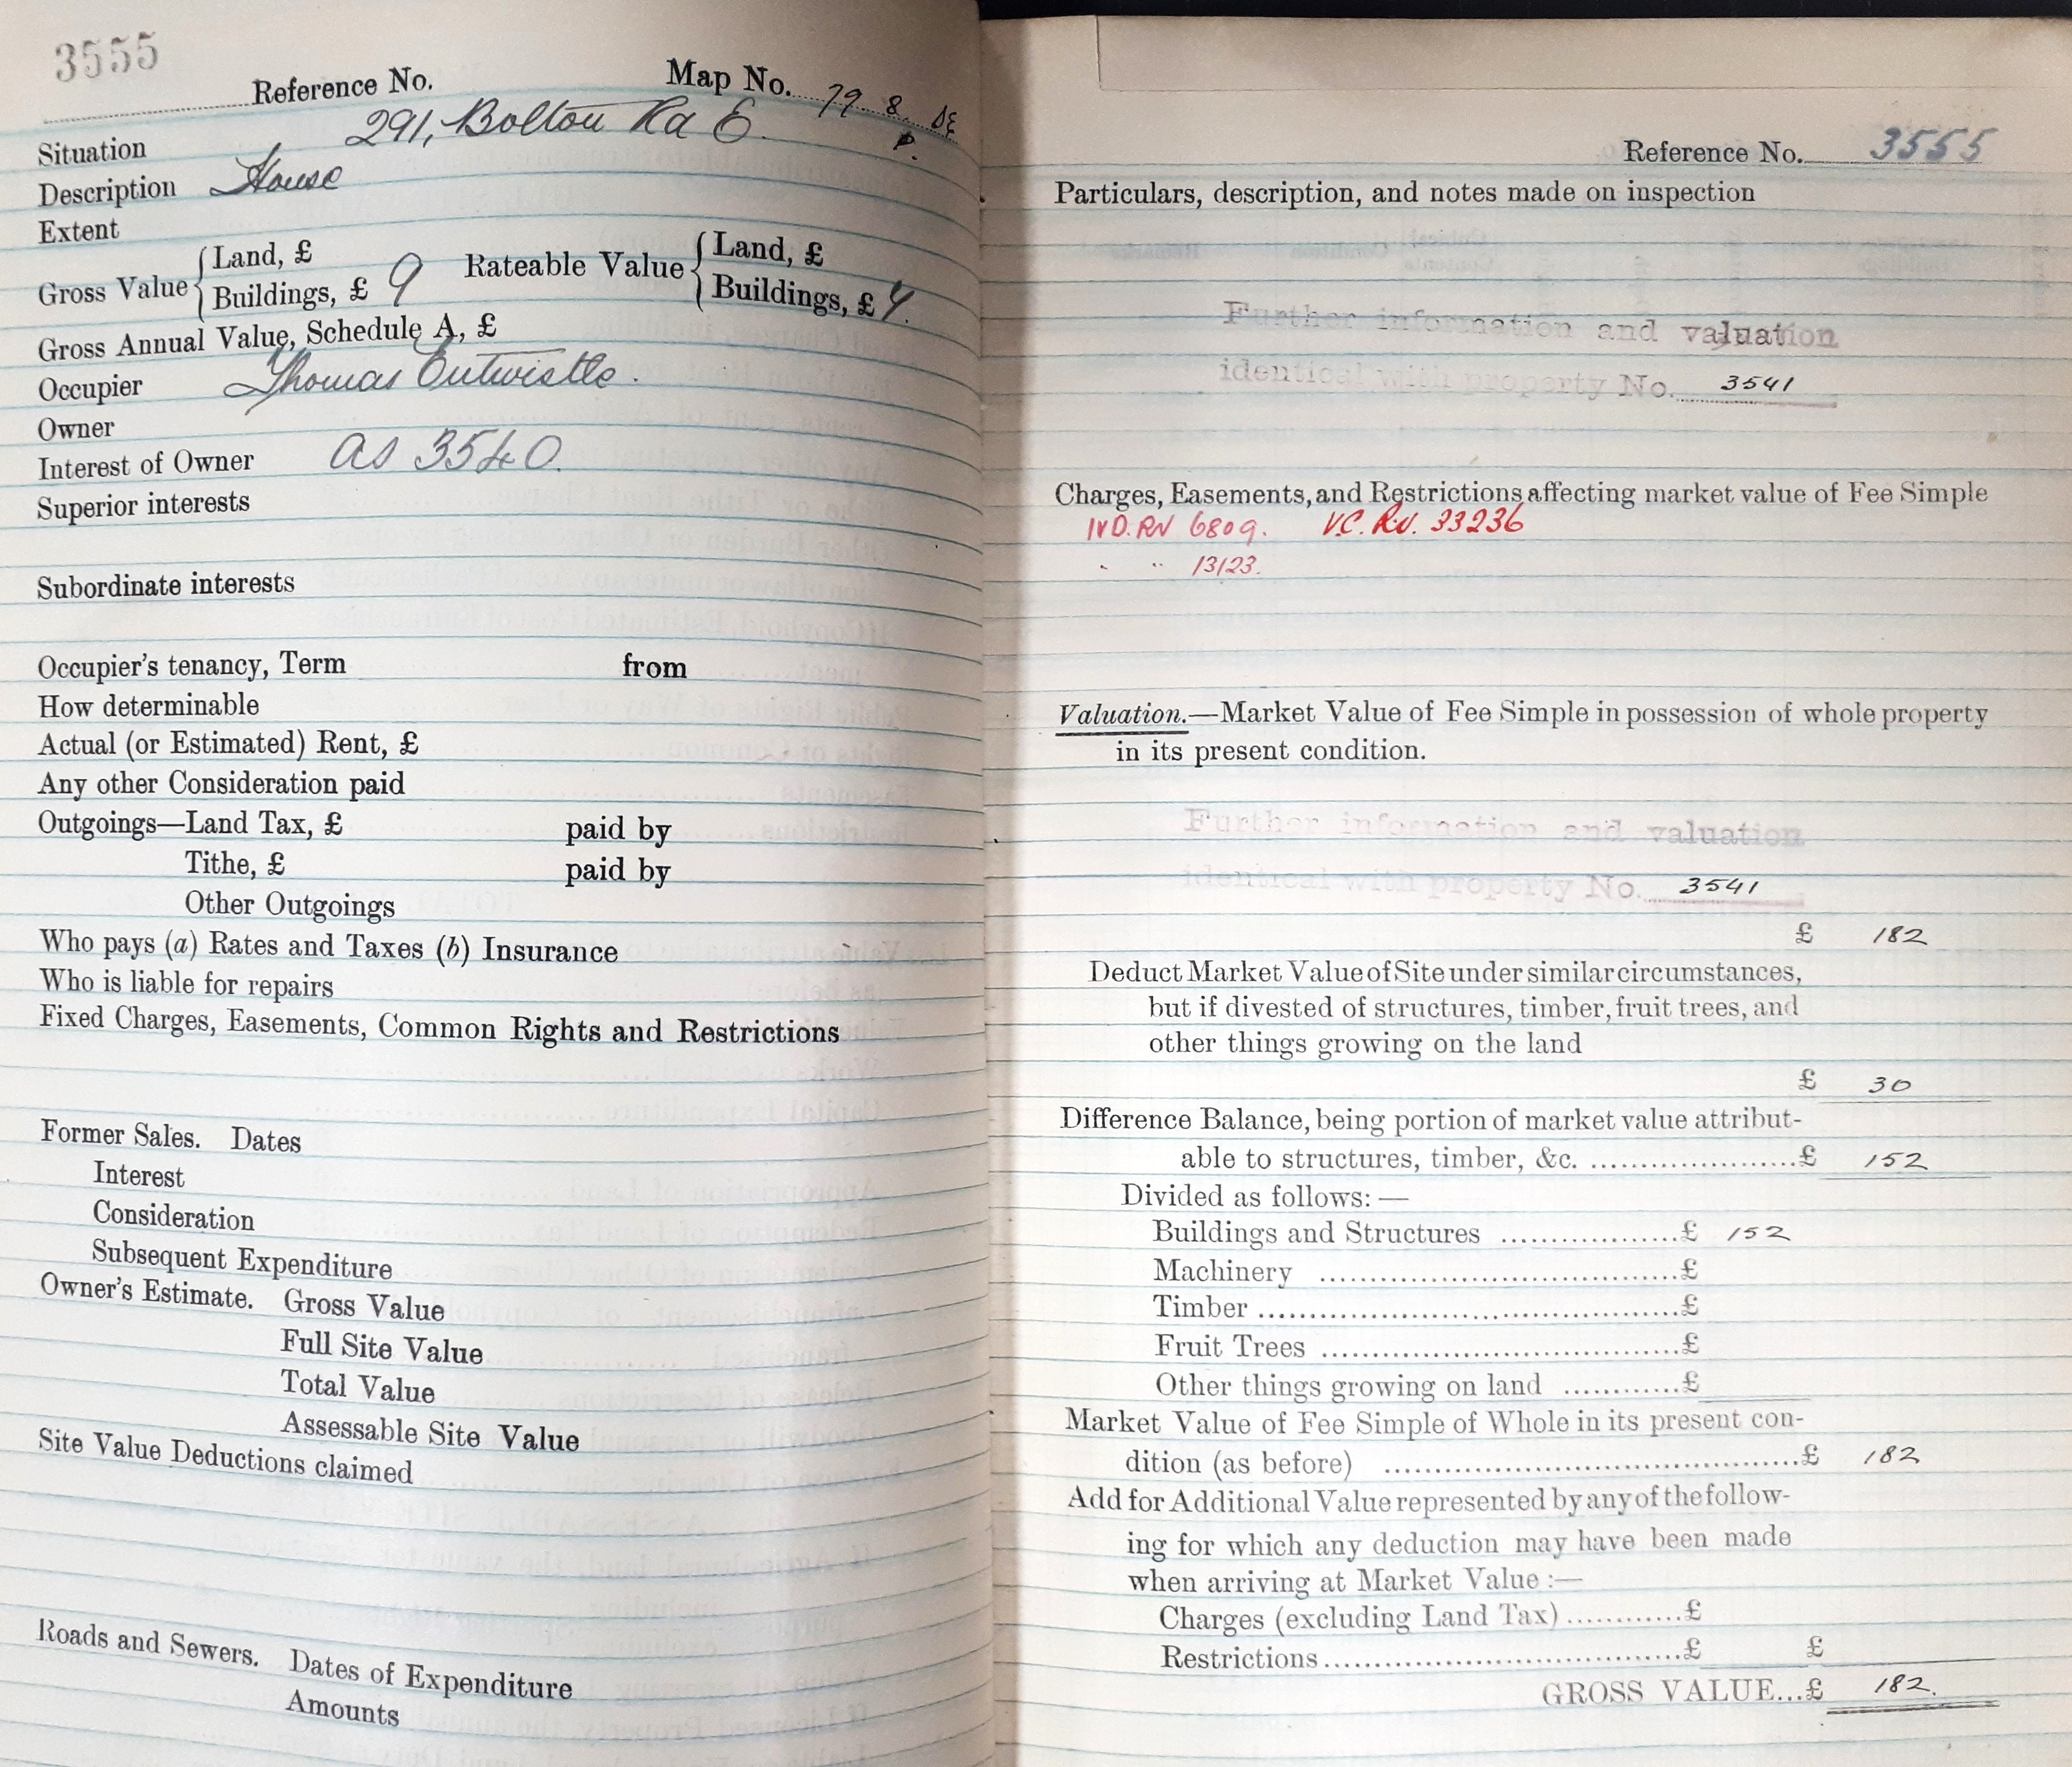 3555
Reference No. Map No. 79. 8. SE
Situation 291, Bolton Rd E.
Description House
Extent
Gross Value { Land, £
Buildings, £ 9
Rateable Value { Land, £
Buildings, £ 7.
Gross Annual Value, Schedule A, £
Occupier Thomas Entwistle.
Owner
Interest of Owner as 3540.
Superior interests
Subordinate interests
Occupier's tenancy, Term from
How determinable
Actual (or Estimated) Rent, £
Any other Consideration paid
Outgoings—Land Tax, £ paid by
Tithe, £ paid by
Other Outgoings
Who pays (a) Rates and Taxes (b) Insurance
Who is liable for repairs
Fixed Charges, Easements, Common Rights and Restrictions
Former Sales. Dates
Interest
Consideration
Subsequent Expenditure
Owner's Estimate. Gross Value
Full Site Value
Total Value
Assessable Site Value
Site Value Deductions claimed
Roads and Sewers. Dates of Expenditure
Amounts
Reference No. 3555
Particulars, description, and notes made on inspection
Further information and valuation
identical with property No. 3541
Charges, Easements, and Restrictions affecting market value of Fee Simple
IVD. RN 6809. V.C. RN. 33236
" " 13123.
Valuation.—Market Value of Fee Simple in possession of whole property
in its present condition.
Further information and valuation
identical with property No. 3541
£ 182
Deduct Market Value of Site under similar circumstances,
but if divested of structures, timber, fruit trees, and
other things growing on the land
£ 30
Difference Balance, being portion of market value attribut-
able to structures, timber, &c. £ 152
Divided as follows:—
Buildings and Structures £ 152
Machinery £
Timber £
Fruit Trees £
Other things growing on land £
Market Value of Fee Simple of Whole in its present con-
dition (as before) £ 182
Add for Additional Value represented by any of the follow-
ing for which any deduction may have been made
when arriving at Market Value :—
Charges (excluding Land Tax) £
Restrictions £ £
GROSS VALUE...£ 182.